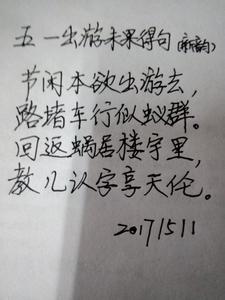 五一出游未果得句（新韵）
节闲本欲出游去，
路堵车行似蚁群。
回返蜗居楼宇里，
教儿认字享天伦。
2017/5/1